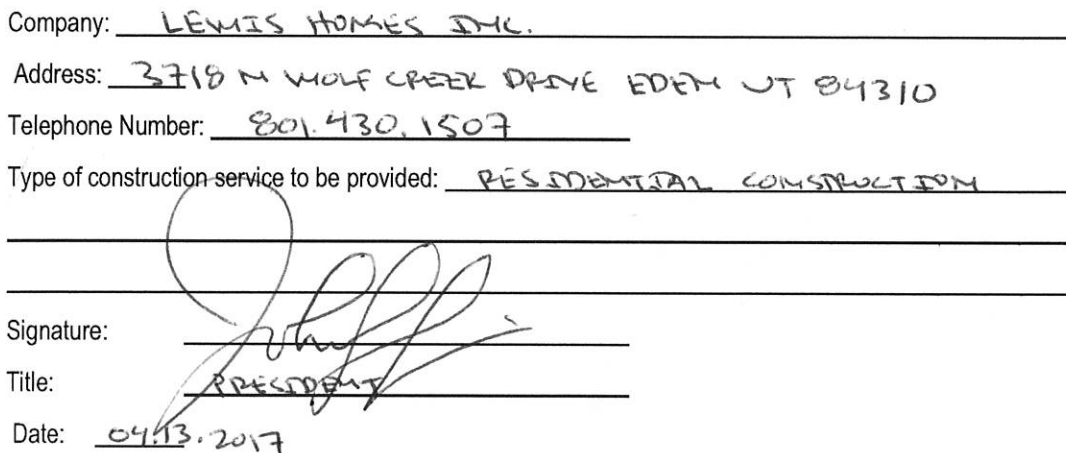 Company: LEWIS HOMES INC.
Address: 3718 N WOLF CREEK DRIVE EDEN UT 84310
Telephone Number: 801.430.1507
Type of construction service to be provided: RESIDENTIAL CONSTRUCTION
Signature:
Title: PRESIDENT
Date: 04.13.2017